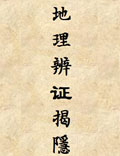 地理辨证揭隱